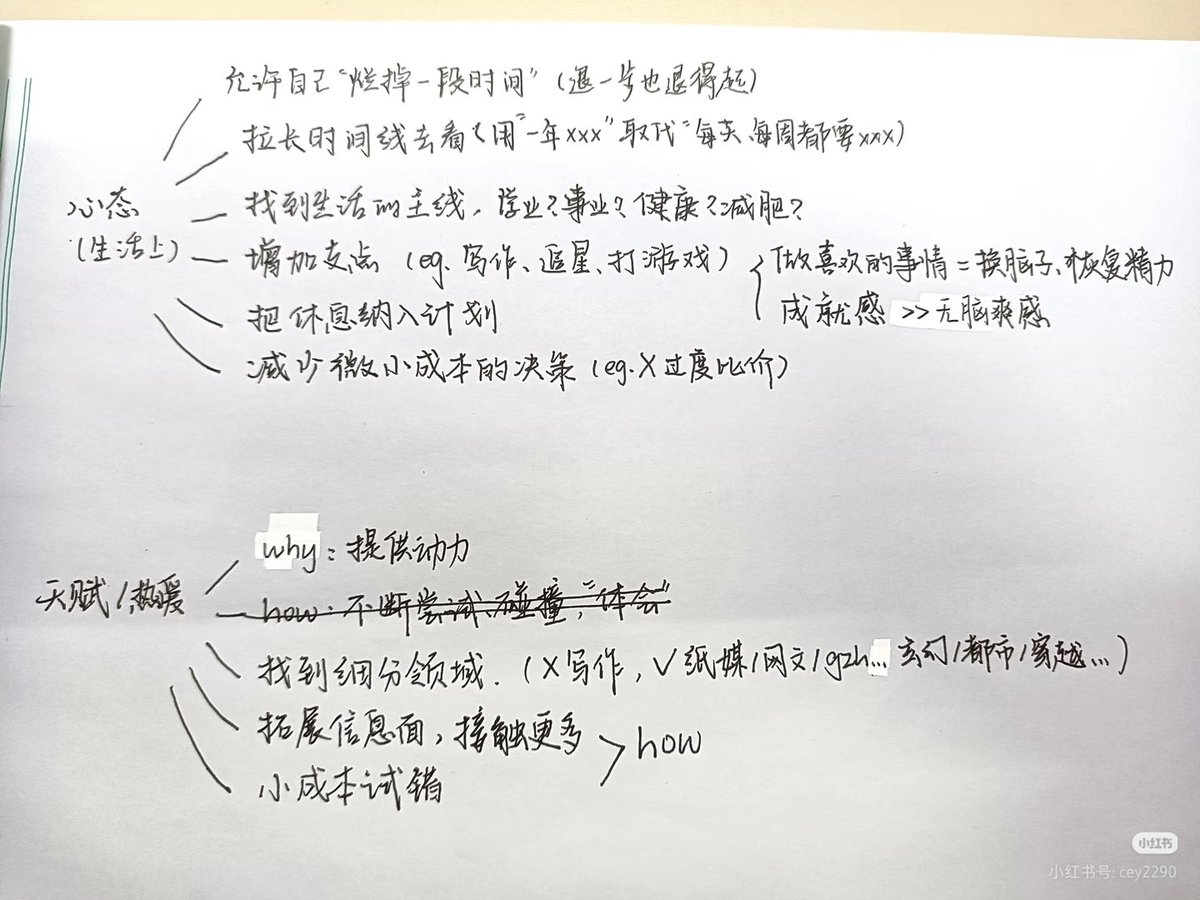 允许自己“烂掉一段时间”(退一步也退得起)
拉长时间线去看(用“一年xxx”取代“每天、每周都要xxx)
心态
(生活上)
找到生活的主线，学业？事业？健康？减肥？
增加支点 (eg. 写作、追星、打游戏)
做喜欢的事情=换脑子、恢复精力
成就感 >> 无脑爽感
把休息纳入计划
减少微小成本的决策 (eg. X 过度比价)
why：提供动力
天赋/热爱
how：不断尝试、碰撞，“体会”
找到细分领域. (X写作，√纸媒/网文/gzh... 玄幻/都市/穿越...)
拓展信息面，接触更多
how
小成本试错
小红书
小红书号: cey2290